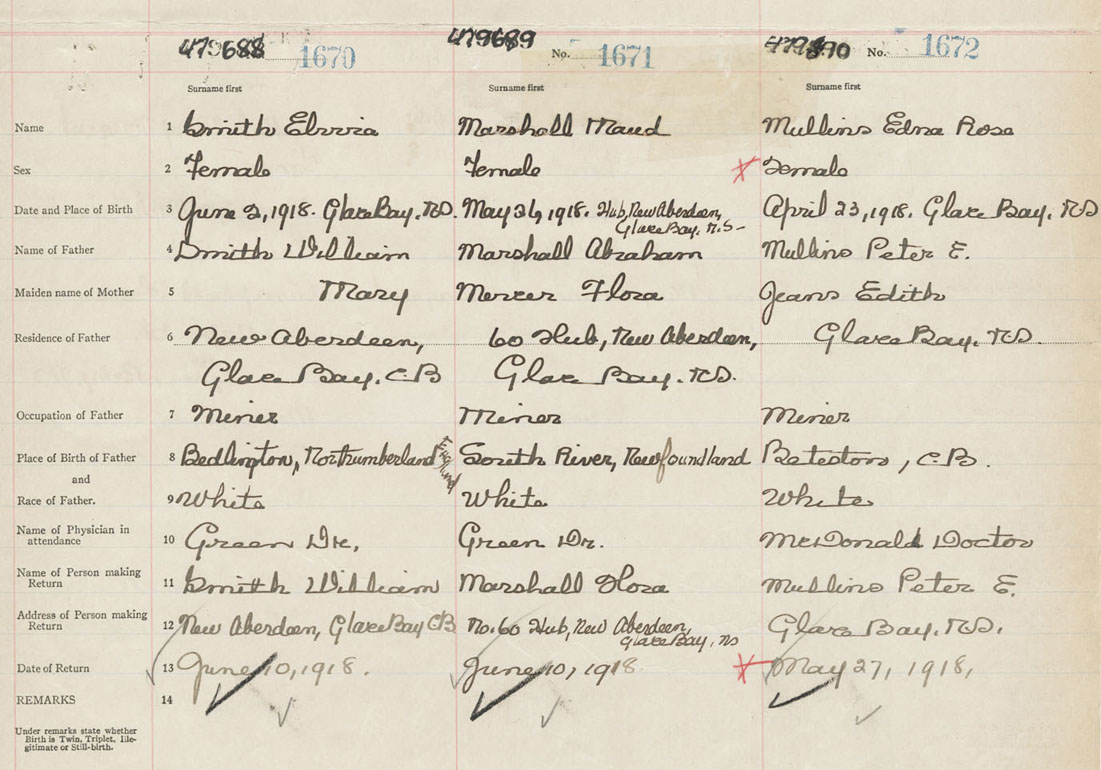 479688 1670 479689 No. 1671 No. 1672
Surname first Surname first Surname first
Name 1 Smith Marshall Maud Mullins Edna Rose
Sex 2 Female Female Female
Date and Place of Birth 3 June 2, 1918. Glace Bay. N.S. May 26, 1918. Hub, New Aberdeen, April 23, 1918. Glace Bay. N.S
Glace Bay. N.S-
Name of Father 4 Smith William Marshall Abraham Mullins Peter E.
Maiden name of Mother 5 Mary Mercer Flora Jeans Edith
Residence of Father 6 New Aberdeen, 60 Hub, New Aberdeen, Glace Bay. N.S.
Glace Bay. C.B Glace Bay. N.S.
Occupation of Father 7 Miner Miner Miner
Place of Birth of Father 8 Bedlington, Northumberland England South River, Newfoundland , C.B.
and
Race of Father. 9 White White White
Name of Physician in
attendance 10 Green Dr. Green Dr. McDonald Doctor
Name of Person making
Return 11 Smith William Marshall Flora Mullins Peter E.
Address of Person making
Return 12 New Aberdeen, Glace Bay C.B No. 60 Hub, New Aberdeen, Glace Bay. N.S.
Glace Bay, NS
Date of Return 13 June 10, 1918. June 10, 1918 May 27, 1918,
REMARKS 14
Under remarks state whether
Birth is Twin, Triplet, Ille-
gitimate or Still-birth.